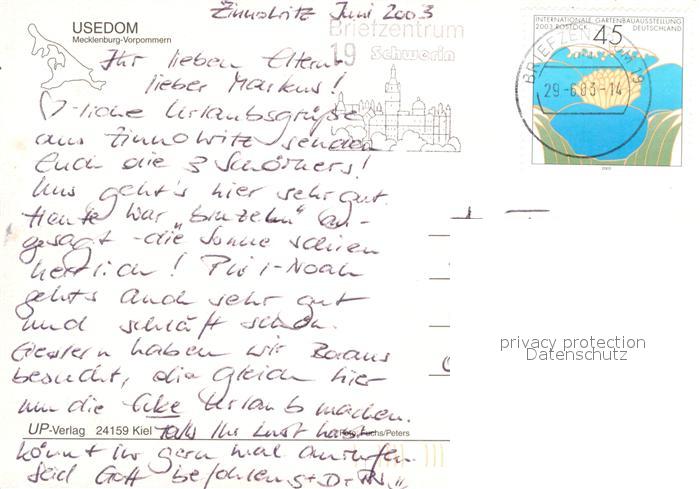 Zinnowitz Juni 2003
USEDOM
Mecklenburg-Vorpommern
Briefzentrum
19 Schwerin
INTERNATIONALE GARTENBAUAUSSTELLUNG
2003 ROSTOCK
DEUTSCHLAND
45
BRIEFZENTRUM 19
29-6.03-14
2003
Ihr lieben Eltern
lieber Markus!
♡-liche Urlaubsgrüße
aus Zinnowitz senden
Euch die 3
Uns geht's hier sehr gut.
Heute war "brutzeln" an-
gesagt - die Sonne schien
herrlich! Noah
gehts auch sehr gut
und schläft schön.
Gestern haben wir
besucht, die gleich hier
um die Ecke Urlaub machen.
Falls Ihr Lust habt
könnt ihr gern mal anrufen.
Seid Gott befohlen
UP-Verlag 24159 Kiel
Foto: Fuchs/Peters
privacy protection
Datenschutz